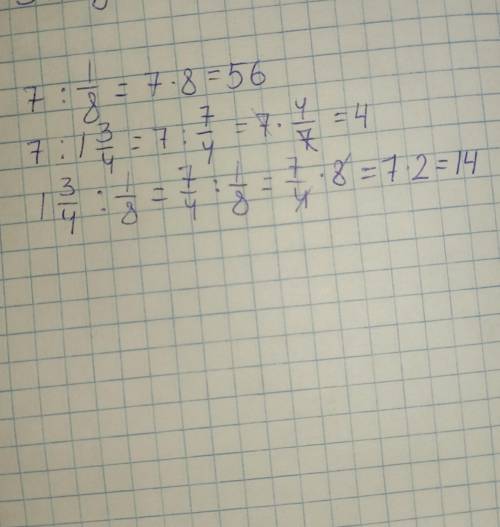 7 : 1/8 = 7 · 8 = 56
7 : 1 3/4 = 7 : 7/4 = 7 · 4/7 = 4
1 3/4 : 1/8 = 7/4 : 1/8 = 7/4 · 8 = 7 · 2 = 14